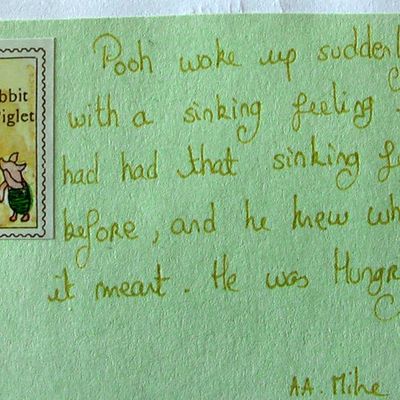 bbit
iglet
Pooh woke up suddenl
with a sinking feeling
had had that sinking f
before, and he knew wh
it meant. He was Hungr
AA. Milne